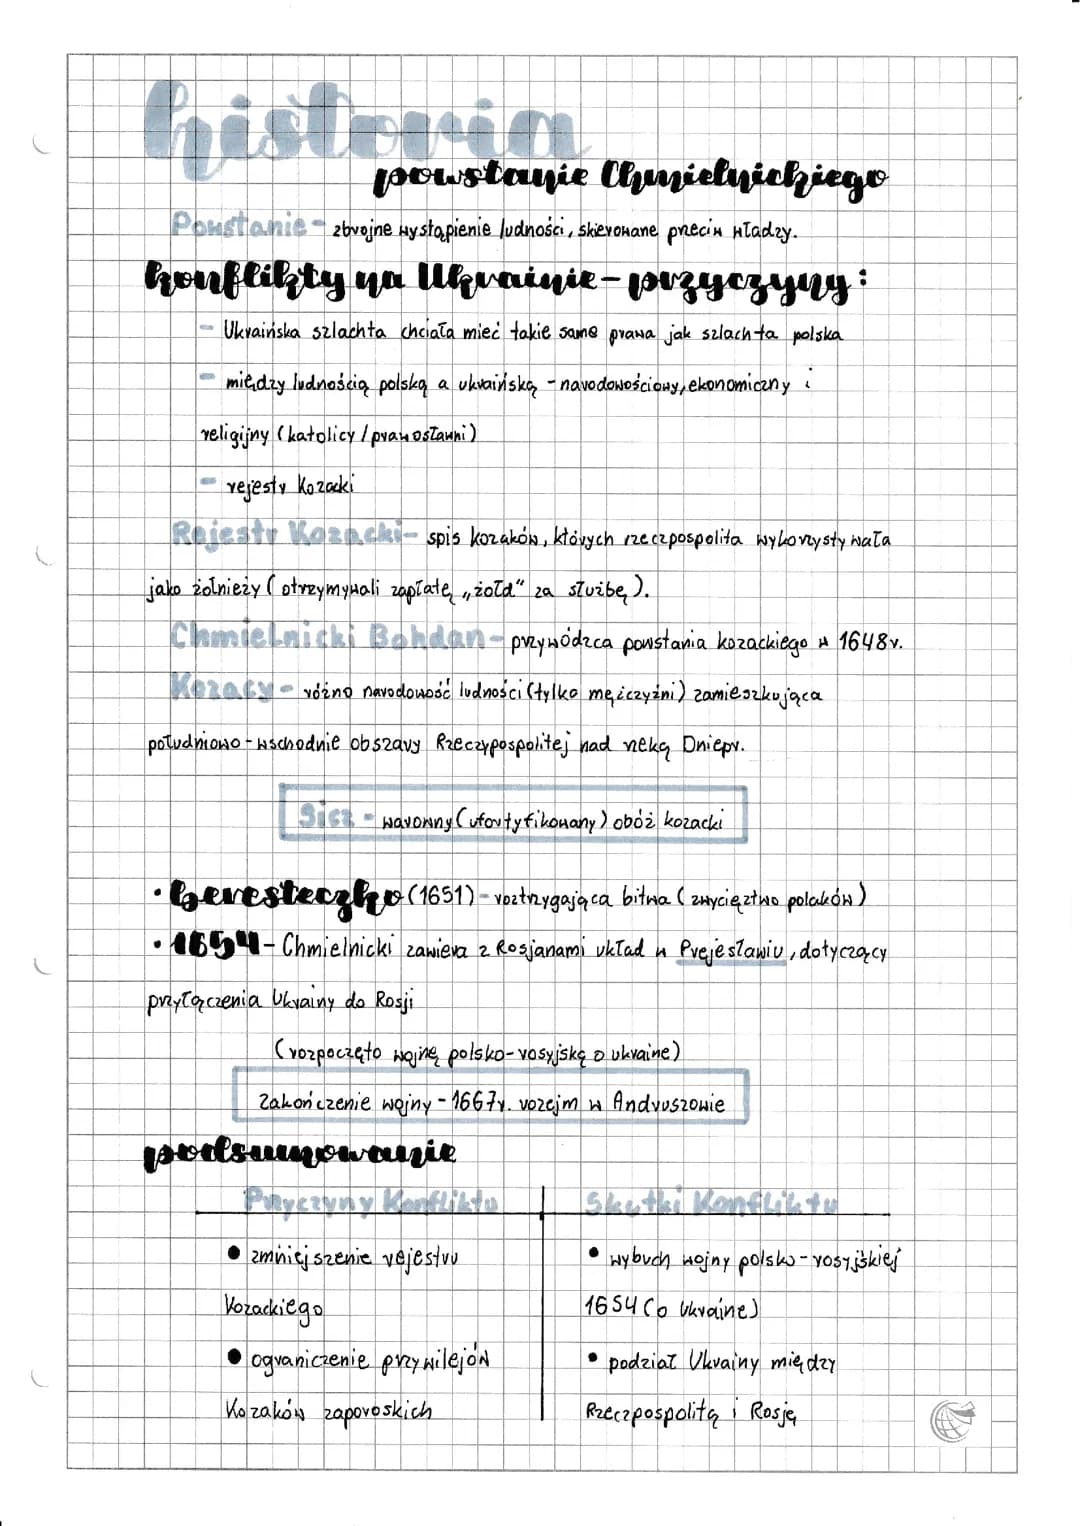 historia
powstanie Chmielnickiego
Powstanie - zbrojne wystąpienie ludności, skierowane przeciw władzy.
konflikty na Ukrainie - przyczyny:
- Ukraińska szlachta chciała mieć takie same prawa jak szlachta polska
- między ludnością polską a ukraińską - narodowościowy, ekonomiczny i
religijny (katolicy / prawosławni)
- rejestr Kozacki
Rejestr Kozacki - spis kozaków, których rzeczpospolita wykorzystywała
jako żołnieży (otrzymywali zapłatę „żołd" za służbę).
Chmielnicki Bohdan - przywódzca powstania kozackiego w 1648r.
Kozacy - różno narodowość ludności (tylko mężczyźni) zamieszkująca
południowo - wschodnie obszary Rzeczypospolitej nad rzeką Dniepr.
Sicz - warowny (ufortyfikowany) obóz kozacki
• beresteczko (1651) - roztrzygająca bitwa (zwycięztwo polaków)
• 1654 - Chmielnicki zawiera z Rosjanami układ w Prejesławiu, dotyczący
przyłączenia Ukrainy do Rosji
(rozpoczęto wojnę polsko-rosyjską o ukraine)
Zakończenie wojny - 1667r. rozejm w Andruszowie
podsumowanie
Przyczyny Konfliktu
Skutki Konfliktu
• zmniejszenie rejestru
Kozackiego
• ograniczenie przywilejów
Kozaków zaporoskich
• wybuch wojny polsko - rosyjskiej
1654 (o Ukraine)
• podział Ukrainy między
Rzeczpospolitą i Rosję